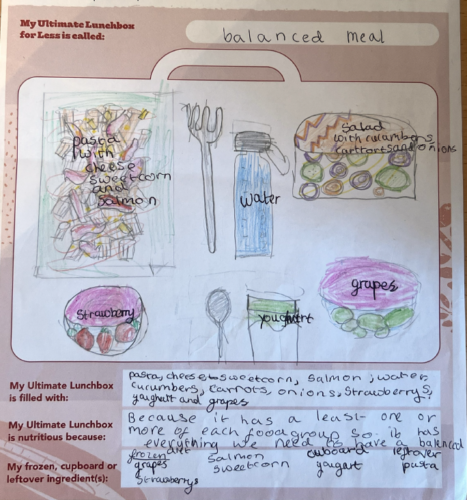 My Ultimate Lunchbox
for Less is called:
balanced meal
pasta
with
cheese
sweetcorn
and
salmon
water
Salad
with cucumbers
carrortsand onions
Strawberry
youghurt
grapes
My Ultimate Lunchbox
is filled with:
pasta, cheese sweetcorn, salmon, water,
cucumbers, carrots, onions, strawberrys,
yoghalt and grapes
My Ultimate Lunchbox
is nutritious because:
Because it has a least one or
more of each foodgroup so it has
everything we need to have a balanced
diet
My frozen, cupboard or
leftover ingredient(s):
frozen salmon cuboard leftover
grapes sweetcorn yougart pasta
strawberrys